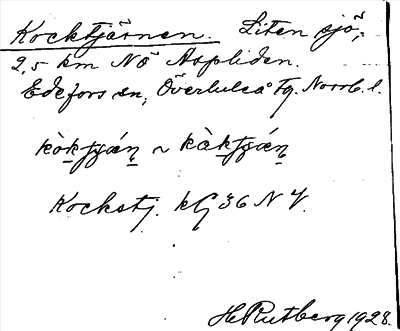 Kocktjärnen. Liten sjö;
2,5 km NÖ Aspliden.
Edefors sn, Överluleå Tg. Norrb. l.
kòktjáṇ ~ kàktjáṇ
Kockstj. kG 36 N V.
H. Rutberg 1928.